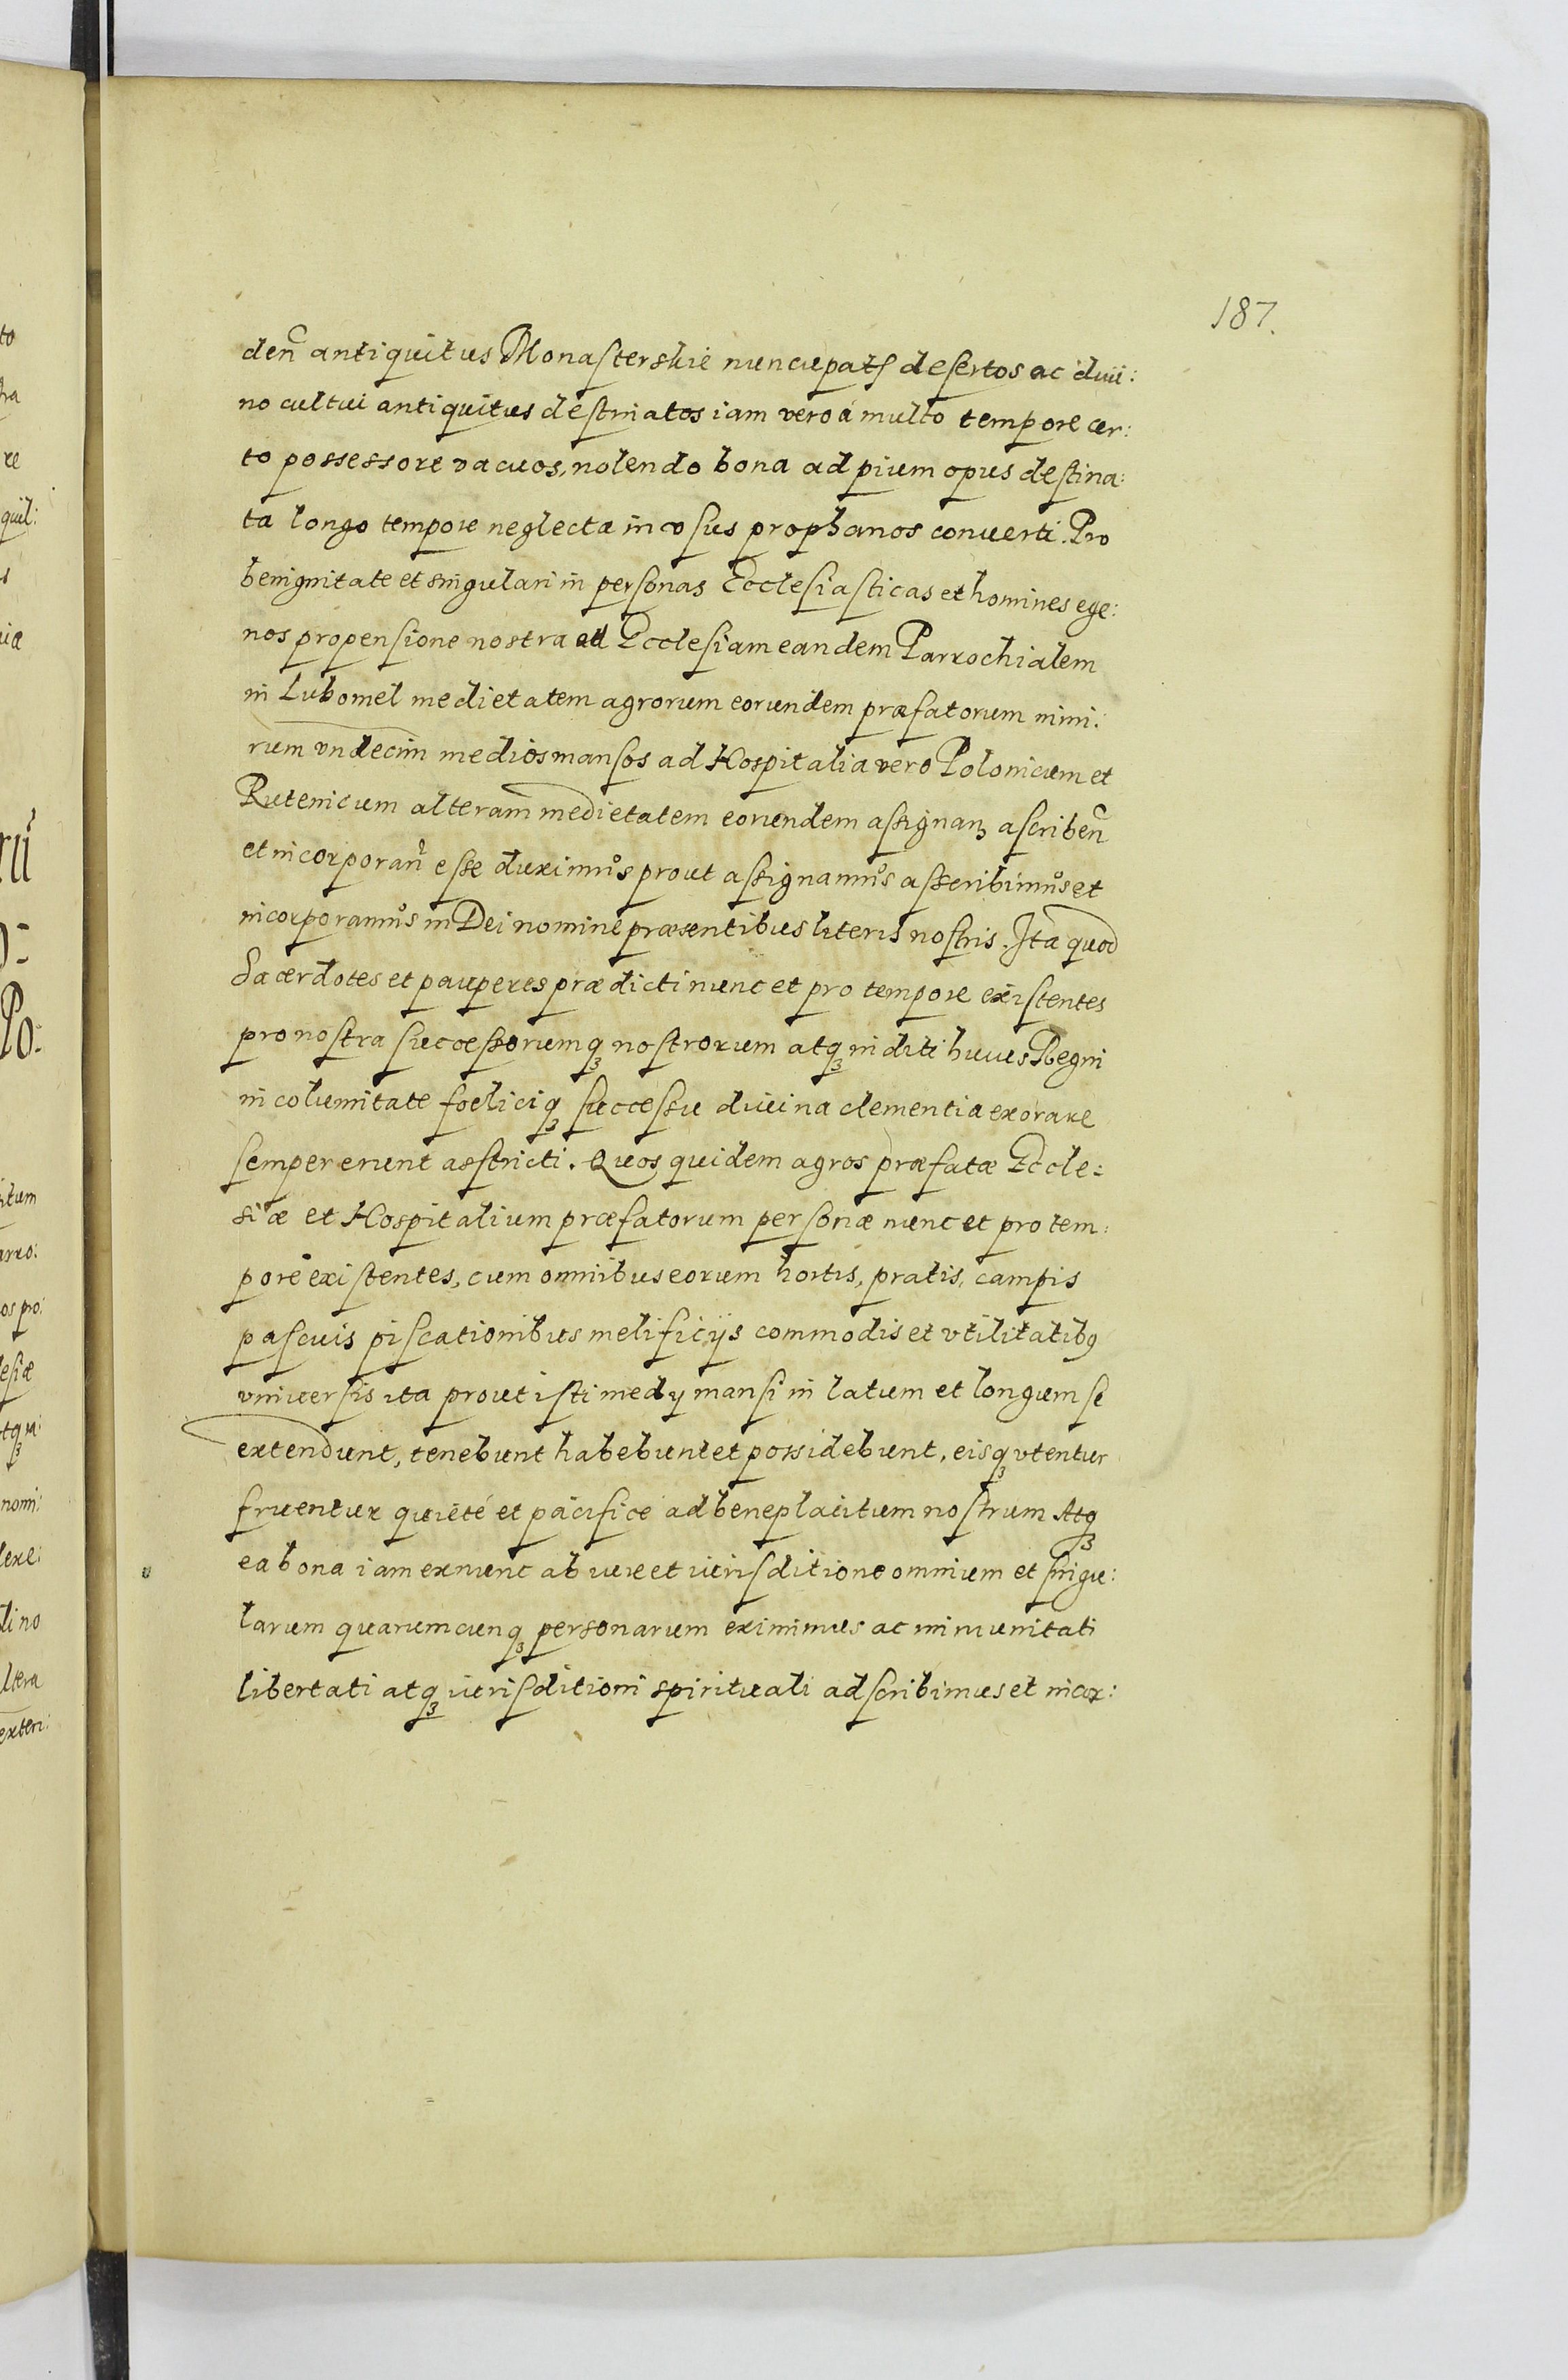 187.
den̄ antiquitus Monasterskie nuncupatſ desertos ac diui:
no cultui antiquitus destinatos iam vero á multo tempore cer:
to possessore vacuos, nolendo bona ad pium opus destina:
ta longo tempore neglecta in vsus prophanos conuerti. Pro
benignitate et singulari in personas Ecclesiasticas et homines ege:
nos propensione nostra ad Ecclesiam eandem Parrochialem
in Lubomel medietatem agrorum eorundem præfatorum nimi:
rum vndecim medios mansos ad Hospitalia vero Polonicum et
Rutenicum alteram medietatem eorundem assignanꝫ ascriben̄
et incorporan̄ esse duximus prout assignamus asscribimus et
incorporamus in Dei nomine præsentibus literis nostris. Ita quod
Sacerdotes et pauperes prædicti nunc et pro tempore existentes
pro nostra successorumqꝫ nostrorum atqꝫ inditi huius Regni
incolumitate foeliciqꝫ successu diuina clementia exorare
semper erunt asstricti. Quos quidem agros præfatæ Eccle:
siæ et Hospitalium præfatorum personæ nunc et pro tem:
pore existentes, cum omnibus eorum hortis, pratis, campis
pascuis piscationibus melificijs commodis et vtilitatibꝫ
vniuersis ita prout isti medy mansi in latum et longum se
extendunt, tenebunt habebunt et possidebunt, eisqꝫ vtentur
fruentur quiété et pacifice ad beneplacitum nostrum Atqꝫ
ea bona iam ex nunc ab iure et iurisditione omnium et singu:
larum quarumcunqꝫ personarum eximimus ac immunitati
libertati atqꝫ iurisditioni spirituali adscribimus et incor: